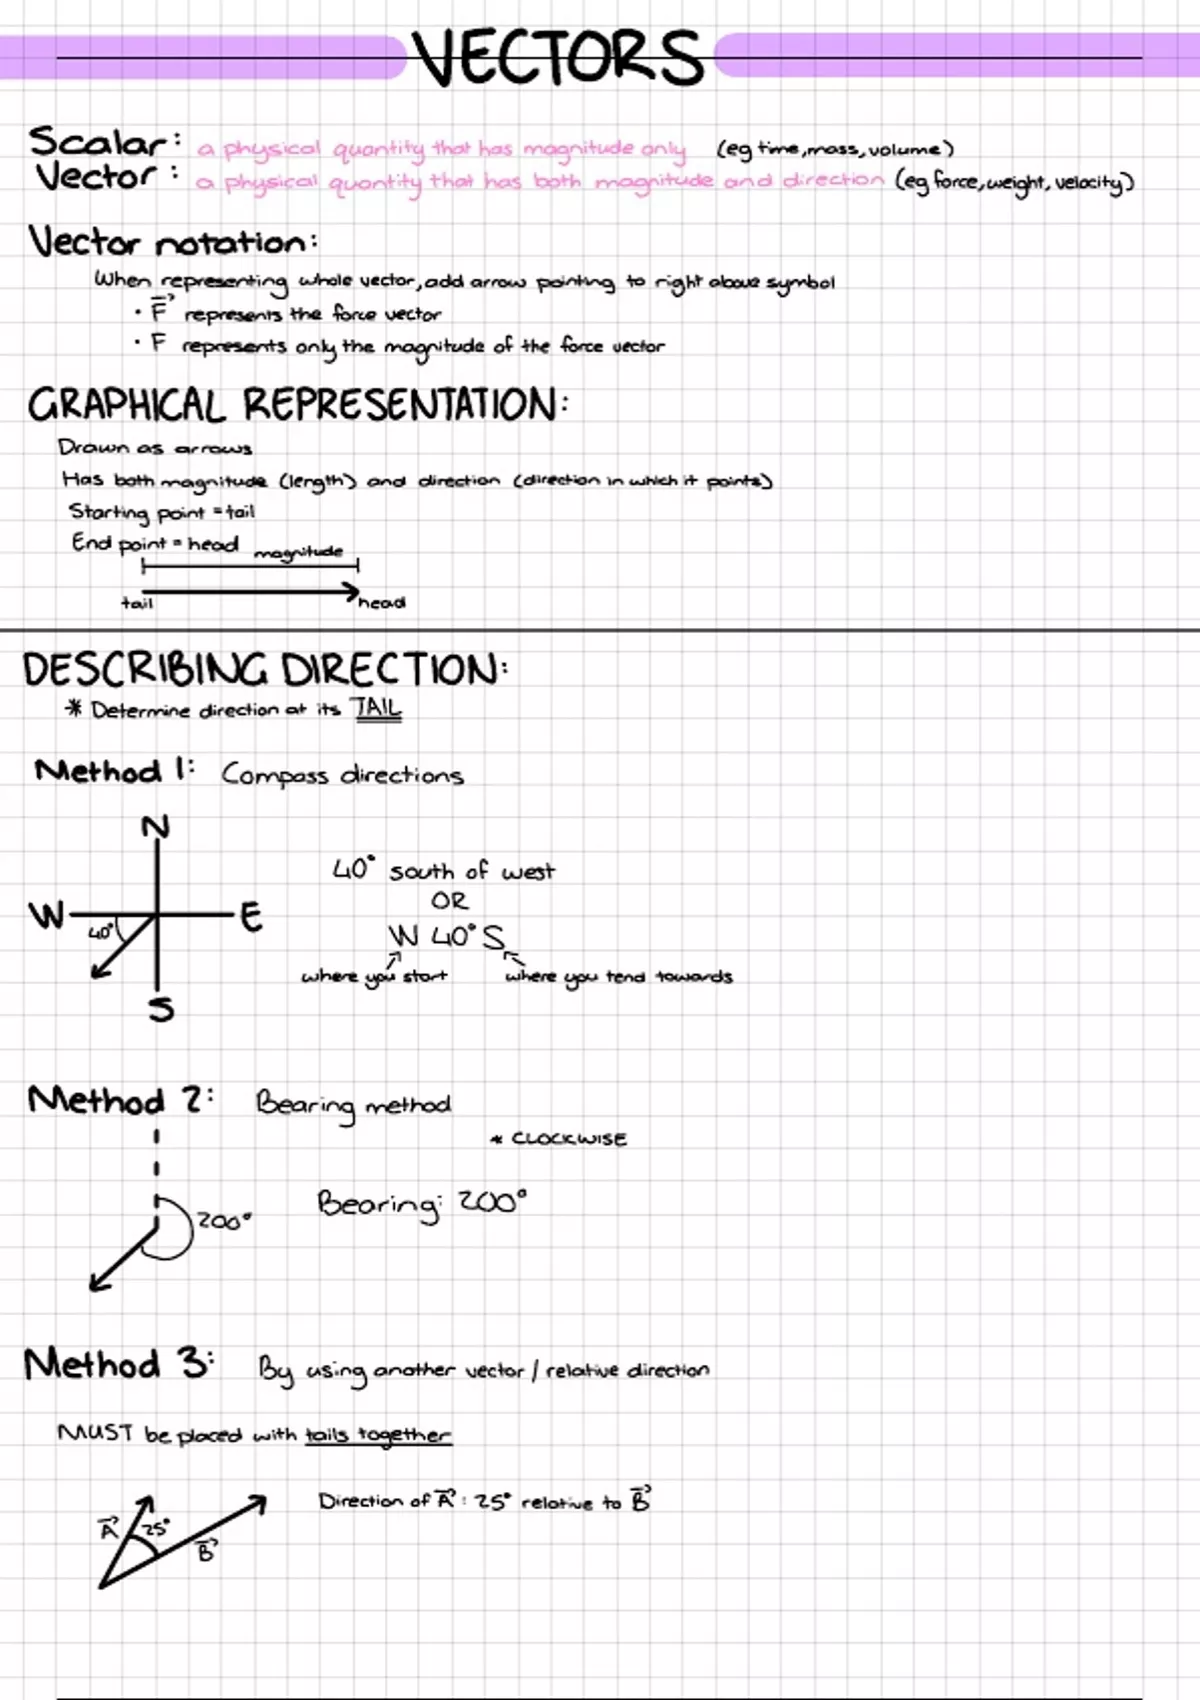 VECTORS
Scalar: a physical quantity that has magnitude only (eg time, mass, volume)
Vector: a physical quantity that has both magnitude and direction (eg force, weight, velocity)
Vector notation:
When representing whole vector, add arrow pointing to right above symbol
• F⃗ represents the force vector
• F represents only the magnitude of the force vector
GRAPHICAL REPRESENTATION:
Drawn as arrows
Has both magnitude (length) and direction (direction in which it points)
Starting point = tail
End point = head
magnitude
tail head
DESCRIBING DIRECTION:
* Determine direction at its TAIL
Method 1: Compass directions
N
40° south of west
OR
W E
40°
W 40° S
where you start where you tend towards
S
Method 2: Bearing method
* CLOCKWISE
200° Bearing: 200°
Method 3: By using another vector / relative direction
MUST be placed with tails together
Direction of A⃗ : 25° relative to B⃗
A⃗ 25°
B⃗